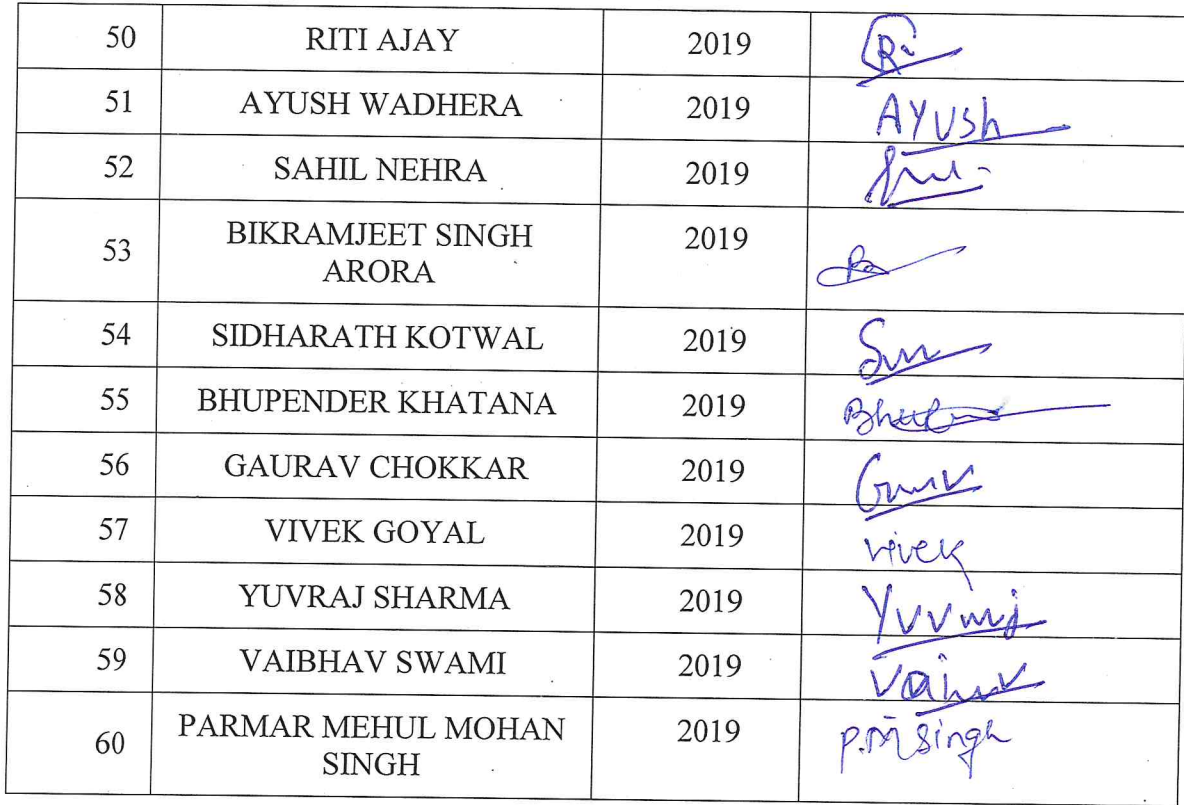 50 RITI AJAY 2019
51 AYUSH WADHERA 2019 AYUsh
52 SAHIL NEHRA 2019
53 BIKRAMJEET SINGH 2019
ARORA
54 SIDHARATH KOTWAL 2019
55 BHUPENDER KHATANA 2019
56 GAURAV CHOKKAR 2019
57 VIVEK GOYAL 2019 vivek
58 YUVRAJ SHARMA 2019 Yuvraj
59 VAIBHAV SWAMI 2019
60 PARMAR MEHUL MOHAN 2019 P.M Singh
SINGH